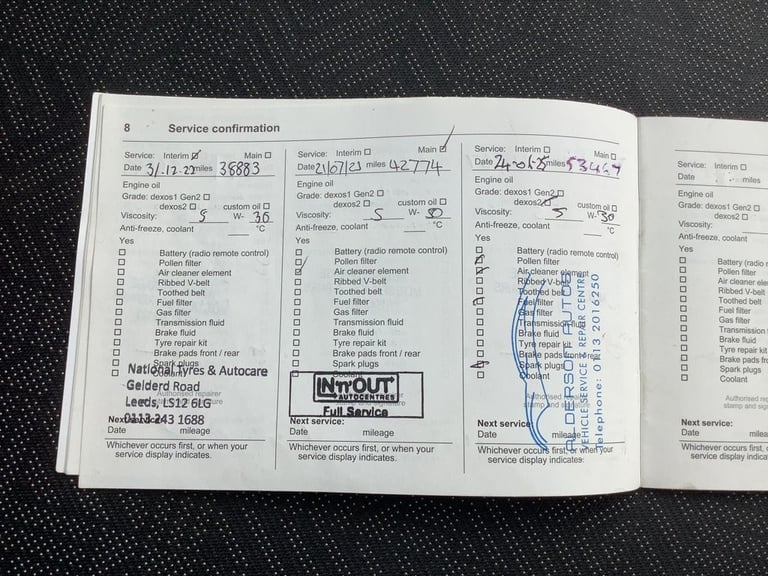 8 Service confirmation
Service: Interim Main
Date 31.12.22 miles 38883
Engine oil
Grade: dexos1 Gen2
dexos2 custom oil
Viscosity: 5 W- 30
Anti-freeze, coolant °C
Yes
Battery (radio remote control)
Pollen filter
Air cleaner element
Ribbed V-belt
Toothed belt
Fuel filter
Gas filter
Transmission fluid
Brake fluid
Tyre repair kit
Brake pads front / rear
Spark plugs
Coolant
National Tyres & Autocare
Gelderd Road
Leeds, LS12 6LG
0113 243 1688
Authorised repairer
stamp and signature
Next service:
Date mileage
Whichever occurs first, or when your
service display indicates.
Service: Interim Main
Date 21/07/23 miles 42774
Engine oil
Grade: dexos1 Gen2
dexos2 custom oil
Viscosity: 5 W- 30
Anti-freeze, coolant °C
Yes
Battery (radio remote control)
Pollen filter
Air cleaner element
Ribbed V-belt
Toothed belt
Fuel filter
Gas filter
Transmission fluid
Brake fluid
Tyre repair kit
Brake pads front / rear
Spark plugs
Coolant
IN'n'OUT
AUTOCENTRES
Full Service
Next service:
Date mileage
Whichever occurs first, or when your
service display indicates.
Service: Interim Main
Date miles
Engine oil
Grade: dexos1 Gen2
dexos2 custom oil
Viscosity: 5 W- 30
Anti-freeze, coolant °C
Yes
Battery (radio remote control)
Pollen filter
Air cleaner element
Ribbed V-belt
Toothed belt
Fuel filter
Gas filter
Transmission fluid
Brake fluid
Tyre repair kit
Brake pads front / rear
Spark plugs
Coolant
Authorised repairer
stamp and signature
ALDERSON AUTOS
VEHICLE SERVICE & REPAIR CENTRE
Telephone: 0113 2016250
Next service:
Date mileage
Whichever occurs first, or when your
service display indicates.
Service: Interim
Date miles
Engine oil
Grade: dexos1 Gen2
dexos2
Viscosity:
Anti-freeze, coolant
Yes
Battery (radio
Pollen filter
Air cleaner
Ribbed V-belt
Toothed belt
Fuel filter
Gas filter
Transmission
Brake fluid
Tyre repair kit
Brake pads
Spark plugs
Coolant
Authorised
stamp and
Next service:
Date mileage
Whichever occurs first, or
service display indica